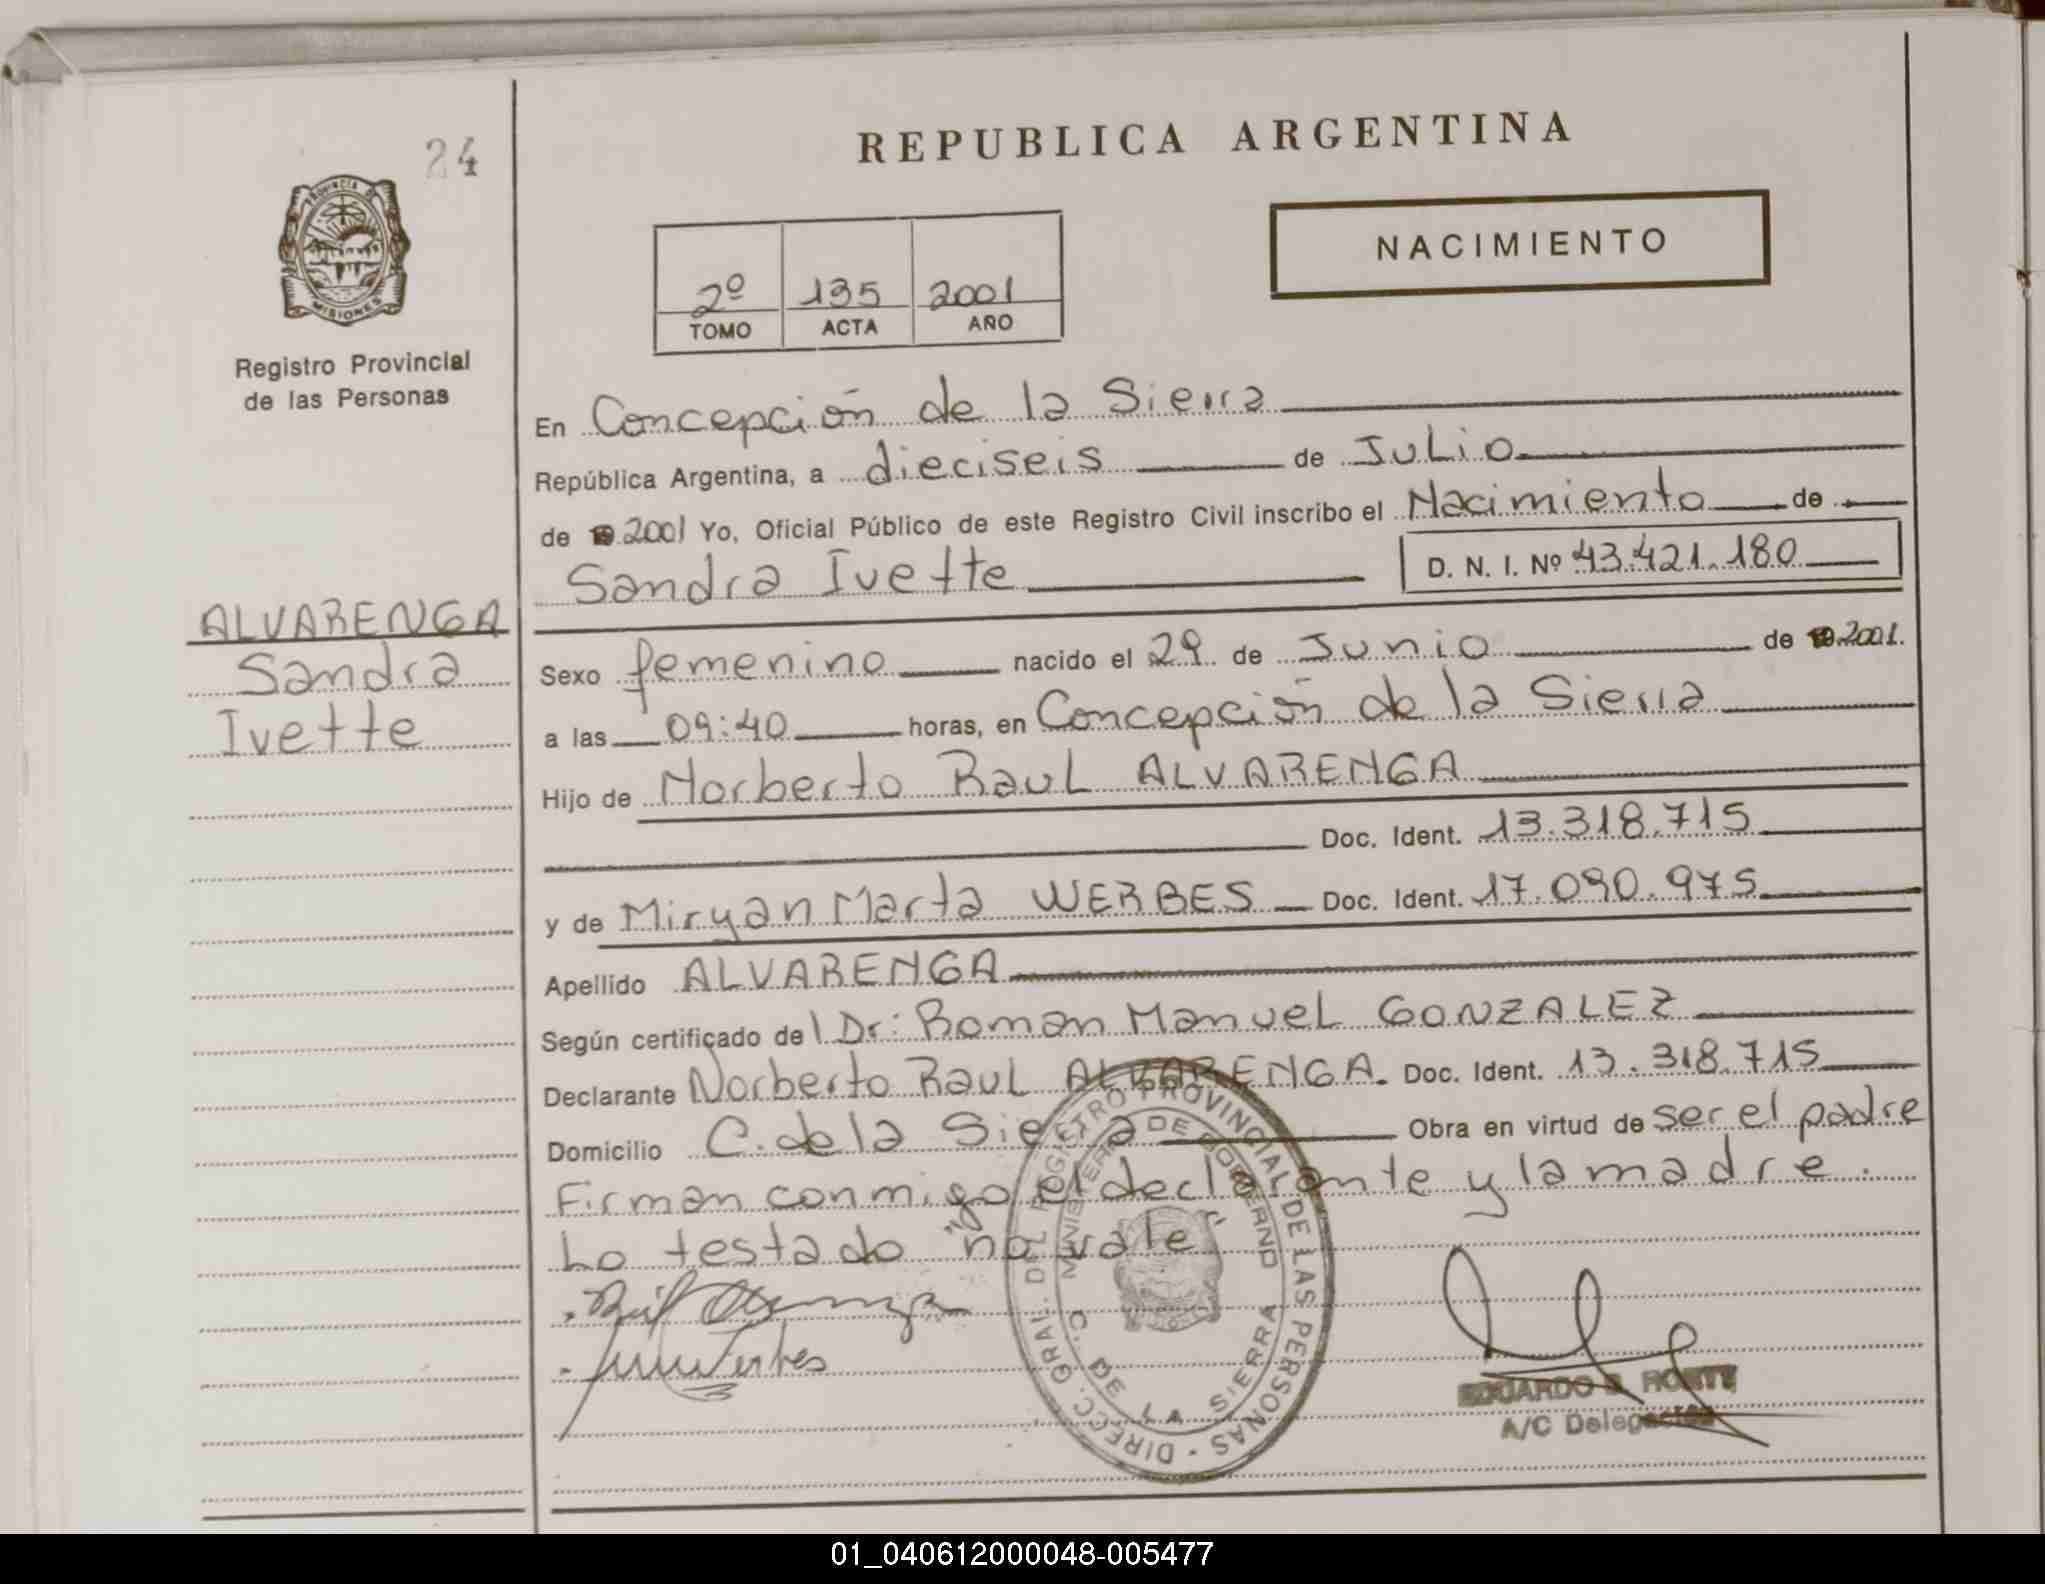 24
REPUBLICA ARGENTINA
PROVINCIA DE
MISIONES
NACIMIENTO
2º 135 2001
TOMO ACTA AÑO
Registro Provincial
de las Personas
En Concepción de la Sierra
República Argentina, a dieciseis de Julio
de 2001 Yo, Oficial Público de este Registro Civil inscribo el Nacimiento de
Sandra Ivette D. N. I. Nº 43.421.180
ALVARENGA
Sandra
Ivette
Sexo femenino nacido el 29 de Junio de 2001.
a las 09:40 horas, en Concepción de la Sierra
Hijo de Norberto Raul ALVARENGA
Doc. Ident. 13.318.715
y de Miryan Marta WERBES Doc. Ident. 17.090.975
Apellido ALVARENGA
Según certificado del Dr: Roman Manuel GONZALEZ
Declarante Norberto Raul ALVARENGA. Doc. Ident. 13.318.715
Domicilio C. de la Sierra Obra en virtud de ser el padre
Firman conmigo el declarante y la madre.
Lo testado "no vale"
DIRECC. GRAL. DEL REGISTRO PROVINCIAL DE LAS PERSONAS
MINISTERIO DE GOBIERNO
C. DE LA SIERRA
EDUARDO
A/C Delegación
01_040612000048-005477